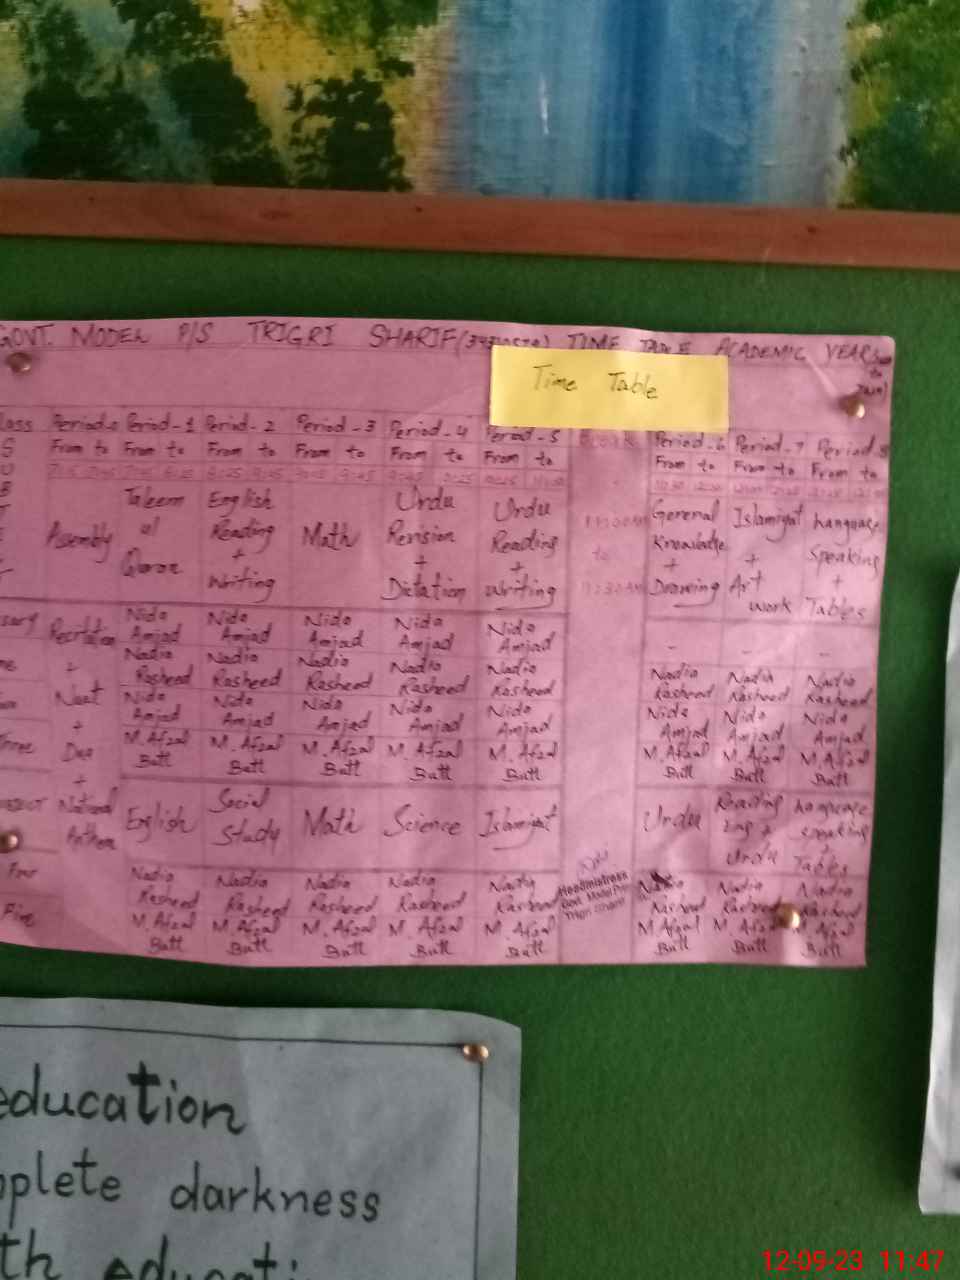 GOVT. MODEL P/S TRIGRI SHARIF TIME TABLE ACADEMIC YEAR
Time Table
Period-0 Period-1 Period-2 Period-3 Period-4 Period-5 Break Period-6 Period-7 Period-8
From to From to From to From to From to From to From to From to From to
Assembly
Taleem ul Quran
English Reading + Writing
Math
Urdu Revision + Dictation
Urdu Reading + Writing
11:00 AM to 11:30 AM
General Knowledge + Drawing
Islamiyat + Art work
Language Speaking + Tables
Recitation + Naat + Dua + National Anthem
Nida Amjad Nida Amjad Nida Amjad Nida Amjad Nida Amjad - - -
Nadia Rasheed Nadia Rasheed Nadia Rasheed Nadia Rasheed Nadia Rasheed Nadia Rasheed Nadia Rasheed Nadia Rasheed
Nida Amjad Nida Amjad Nida Amjad Nida Amjad Nida Amjad Nida Amjad Nida Amjad Nida Amjad
Three M. Afzal Butt M. Afzal Butt M. Afzal Butt M. Afzal Butt M. Afzal Butt M. Afzal Butt M. Afzal Butt M. Afzal Butt
English Social Study Math Science Islamiyat Urdu Reading Eng + Urdu Language speaking Tables
Four Nadia Rasheed Nadia Rasheed Nadia Rasheed Nadia Rasheed Nadia Rasheed Nadia Rasheed Nadia Rasheed Nadia Rasheed
Five M. Afzal Butt M. Afzal Butt M. Afzal Butt M. Afzal Butt M. Afzal Butt M. Afzal Butt M. Afzal Butt M. Afzal Butt
Headmistress
Govt. Model
education
darkness
12-09-23 11:47